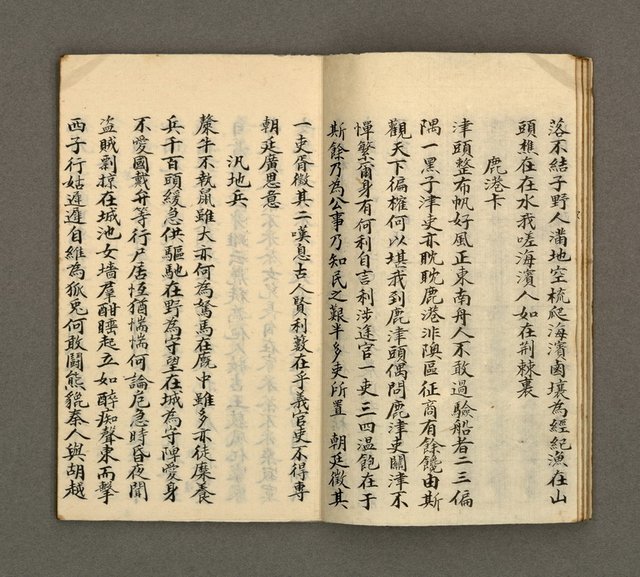 落不結子野人滿地空梳爬海濱鹵壤為經紀漁在山
頭樵在在水我嗟海濱人如在荆棘裏
鹿港卡
津頭整布帆好風正東南舟人不敢過驗船者二三偏
隅一黑子津吏亦眈眈鹿港非隩區征商有餘饒由斯
觀天下徧榷何以堪我到鹿津頭偶問鹿津吏關津不
憚繁爾身有何利自言利涉途官一吏三四溫飽在于
斯餘乃為公事乃知民之艱半多吏所置 朝廷徵其
一吏胥徵其二嘆息古人賢利藪在乎義官吏不得專
朝廷廣恩意
汛地兵
犛牛不執鼠雖大亦何為駑馬在廄中雖多亦徒糜養
兵千百頭緩急供驅馳在野為守望在城為守陴愛身
不愛國戴弁等行尸居恆猶惴惴何論戹急時昏夜聞
盜賊剽掠在城池女墻羣酣睡起立如醉痴聲東而擊
西子行姑遲遲自維為狐兎何敢鬭熊貔秦人與胡越